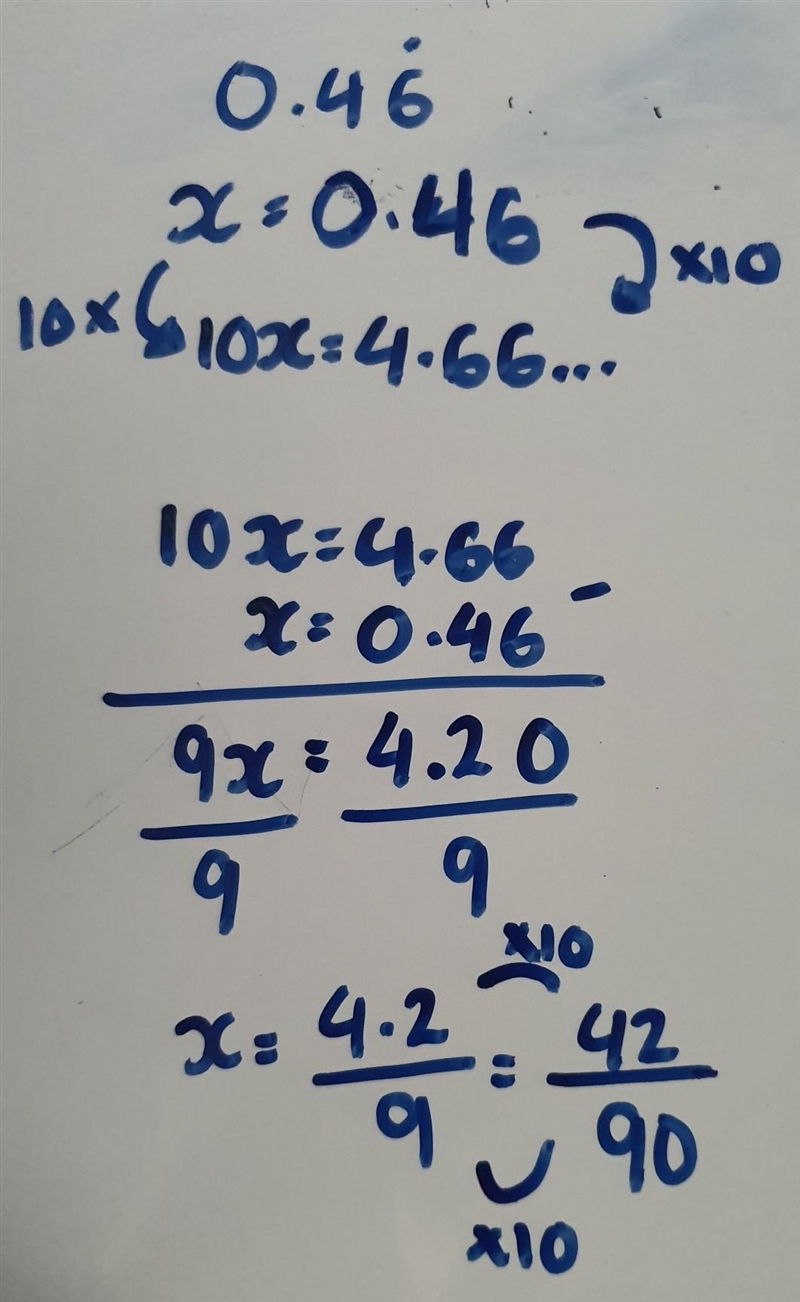 0.46̇
x = 0.46
×10
10× 10x = 4.66...
10x = 4.66
x = 0.46 -
9x = 4.20
9 9
×10
x = 4.2 = 42
9 90
×10